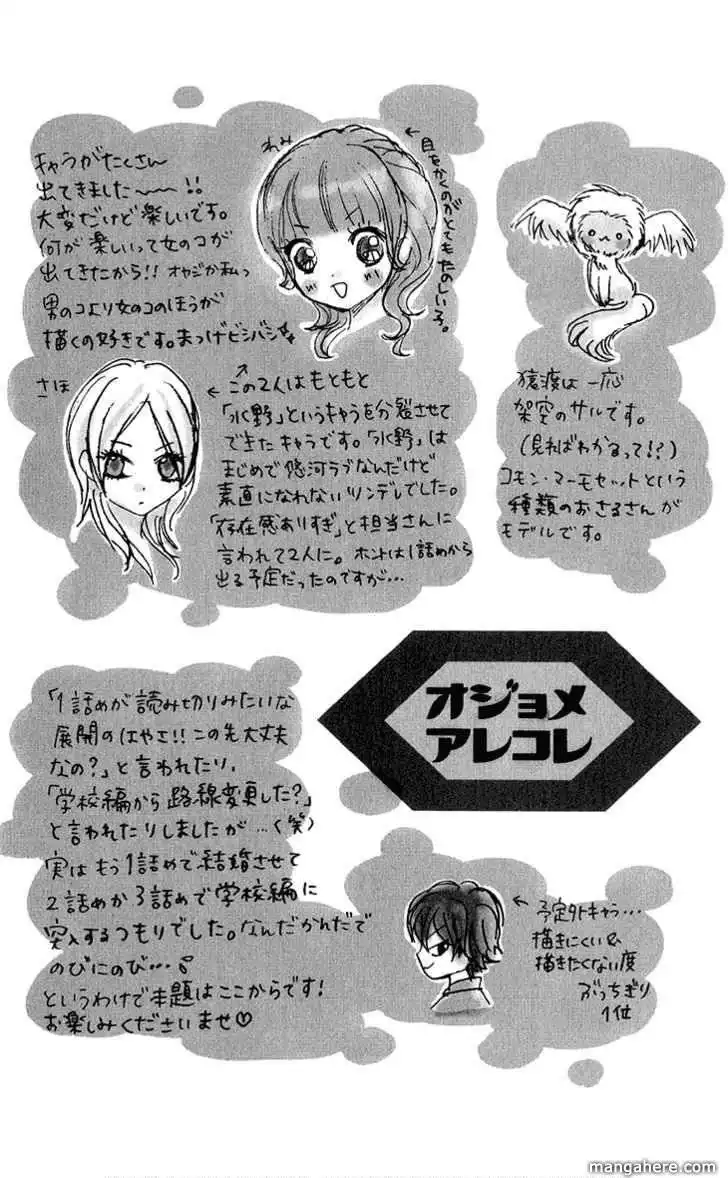 キャラがたくさん
出てきました〜〜!!
大変だけど楽しいです。
何が楽しいって女のコが
出てきたから!! オヤジか私っ
男のコより女のコのほうが
描くの好きです。まつげビシバシ
わみ
←目をかくのがとてもたのしい子。
さほ
← この2人はもともと
「水野」というキャラを分裂させて
できたキャラです。「水野」は
まじめで悠河ラブなんだけど
素直になれないツンデレでした。
「存在感ありすぎ」と担当さんに
言われて2人に。ホントは1話めから
出る予定だったのですが…
猿渡は一応
架空のサルです。
(見ればわかるって!?)
コモン・マーモセットという
種類のおさるさんが
モデルです。
オジョメ
アレコレ
「1話めが読み切りみたいな
展開のはやさ!! この先大丈夫
なの?」と言われたり、
「学校編から路線変更した?」
と言われたりしましたが…(笑)
実はもう1話めで結婚させて
2話めか3話めで学校編に
突入するつもりでした。なんだかんだで
のびにのび…
というわけで本題はここからです!
お楽しみくださいませ♡
← 予定外キャラ…
描きにくい&
描きたくない度
ぶっちぎり
1位
mangahere.com